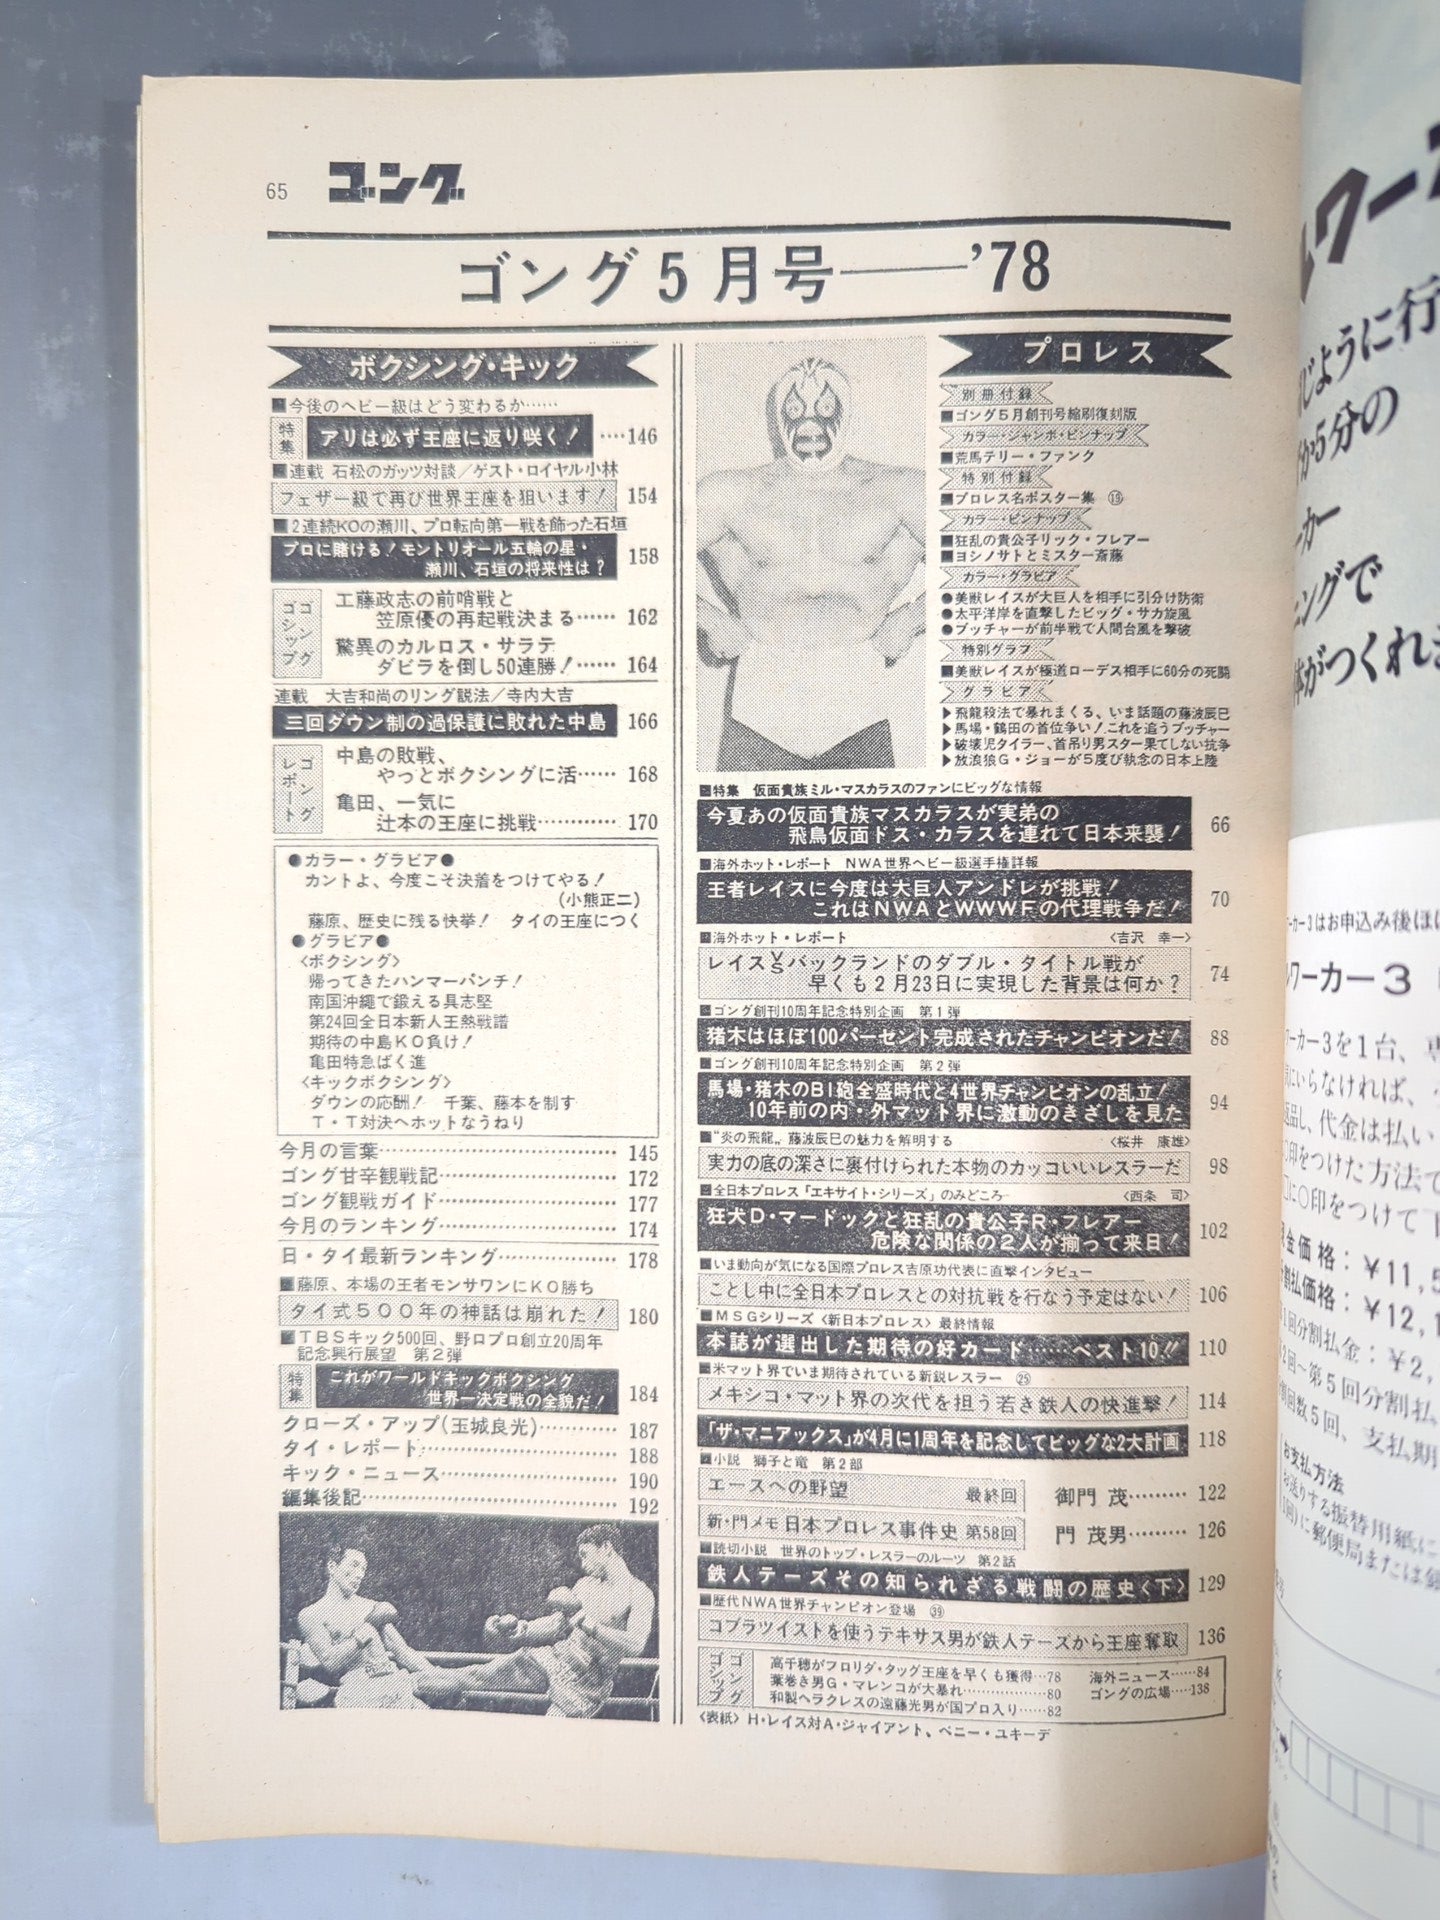 65
ゴング
ゴング5月号――'78
ボクシング・キック
■今後のヘビー級はどう変わるか……
特集
アリは必ず王座に返り咲く!
…146
■連載 石松のガッツ対談/ゲスト・ロイヤル小林
フェザー級で再び世界王座を狙います!
154
■2連続KOの瀬川、プロ転向第一戦を飾った石垣
プロに賭ける!モントリオール五輪の星・
瀬川、石垣の将来性は?
158
ゴングゴシップ
工藤政志の前哨戦と
笠原優の再起戦決まる……162
驚異のカルロス・サラテ
ダビラを倒し50連勝!……164
連載 大吉和尚のリング説法/寺内大吉
三回ダウン制の過保護に敗れた中島
166
ゴングレポート
中島の敗戦、
やっとボクシングに活……168
亀田、一気に
辻本の王座に挑戦…………170
●カラー・グラビア●
カントよ、今度こそ決着をつけてやる!
(小熊正二)
藤原、歴史に残る快挙! タイの王座につく
●グラビア●
<ボクシング>
帰ってきたハンマーパンチ!
南国沖縄で鍛える具志堅
第24回全日本新人王熱戦譜
期待の中島KO負け!
亀田特急ばく進
<キックボクシング>
ダウンの応酬! 千葉、藤本を制す
T・T対決へホットなうねり
今月の言葉……………………………145
ゴング甘辛観戦記……………………172
ゴング観戦ガイド……………………177
今月のランキング……………………174
日・タイ最新ランキング……………178
■藤原、本場の王者モンサワンにKO勝ち
タイ式500年の神話は崩れた!
180
■TBSキック500回、野口プロ創立20周年
記念興行展望 第2弾
特集
これがワールドキックボクシング
世界一決定戦の全貌だ!
184
クローズ・アップ(玉城良光)………187
タイ・レポート………………………188
キック・ニュース……………………190
編集後記………………………………192
プロレス
別冊付録
■ゴング5月創刊号縮刷復刻版
カラー・ジャンボ・ピンナップ
■荒馬テリー・ファンク
特別付録
■プロレス名ポスター集 ⑲
カラー・ピンナップ
■狂乱の貴公子リック・フレアー
■ヨシノサトとミスター斎藤
カラー・グラビア
●美獣レイスが大巨人を相手に引分け防衛
●太平洋岸を直撃したビッグ・サカ旋風
●ブッチャーが前半戦で人間台風を撃破
特別グラフ
■美獣レイスが極道ローデス相手に60分の死闘
グラビア
▶飛龍殺法で暴れまくる、いま話題の藤波辰巳
▶馬場・鶴田の首位争い!これを追うブッチャー
▶破壊児タイラー、首吊り男スター果てしない抗争
▶放浪狼G・ジョーが5度び執念の日本上陸
■特集 仮面貴族ミル・マスカラスのファンにビッグな情報
今夏あの仮面貴族マスカラスが実弟の
飛鳥仮面ドス・カラスを連れて日本来襲!
66
■海外ホット・レポート NWA世界ヘビー級選手権詳報
王者レイスに今度は大巨人アンドレが挑戦!
これはNWAとWWWFの代理戦争だ!
70
■海外ホット・レポート <吉沢 幸一>
レイスVSバックランドのダブル・タイトル戦が
早くも2月23日に実現した背景は何か?
74
■ゴング創刊10周年記念特別企画 第1弾
猪木はほぼ100パーセント完成されたチャンピオンだ!
88
■ゴング創刊10周年記念特別企画 第2弾
馬場・猪木のBI砲全盛時代と4世界チャンピオンの乱立!
10年前の内・外マット界に激動のきざしを見た
94
■"炎の飛龍"藤波辰巳の魅力を解明する <桜井 康雄>
実力の底の深さに裏付けられた本物のカッコいいレスラーだ
98
■全日本プロレス「エキサイト・シリーズ」のみどころ <西条 司>
狂犬D・マードックと狂乱の貴公子R・フレアー
危険な関係の2人が揃って来日!
102
■いま動向が気になる国際プロレス吉原功代表に直撃インタビュー
ことし中に全日本プロレスとの対抗戦を行なう予定はない!
106
■MSGシリーズ<新日本プロレス>最終情報
本誌が選出した期待の好カード……ベスト10!!
110
■米マット界でいま期待されている新鋭レスラー ㉕
メキシコ・マット界の次代を担う若き鉄人の快進撃!
114
「ザ・マニアックス」が4月に1周年を記念してビッグな2大計画
118
■小説 獅子と竜 第2部
エースへの野望 最終回 御門 茂………122
新・門メモ 日本プロレス事件史 第58回 門 茂男………126
■読切小説 世界のトップ・レスラーのルーツ 第2話
鉄人テーズその知られざる戦闘の歴史<下>
129
■歴代NWA世界チャンピオン登場 ㊴
コブラツイストを使うテキサス男が鉄人テーズから王座奪取
136
ゴングゴシップ
高千穂がフロリダ・タッグ王座を早くも獲得…78
葉巻き男G・マレンコが大暴れ……………80
和製ヘラクレスの遠藤光男が国プロ入り……82
海外ニュース……84
ゴングの広場……138
<表紙>H・レイス対A・ジャイアント、ベニー・ユキーデ
じように行
5分の
ニングで
ワーカー3
現金価格:¥11,5
分割払価格:¥12,1
お支払方法